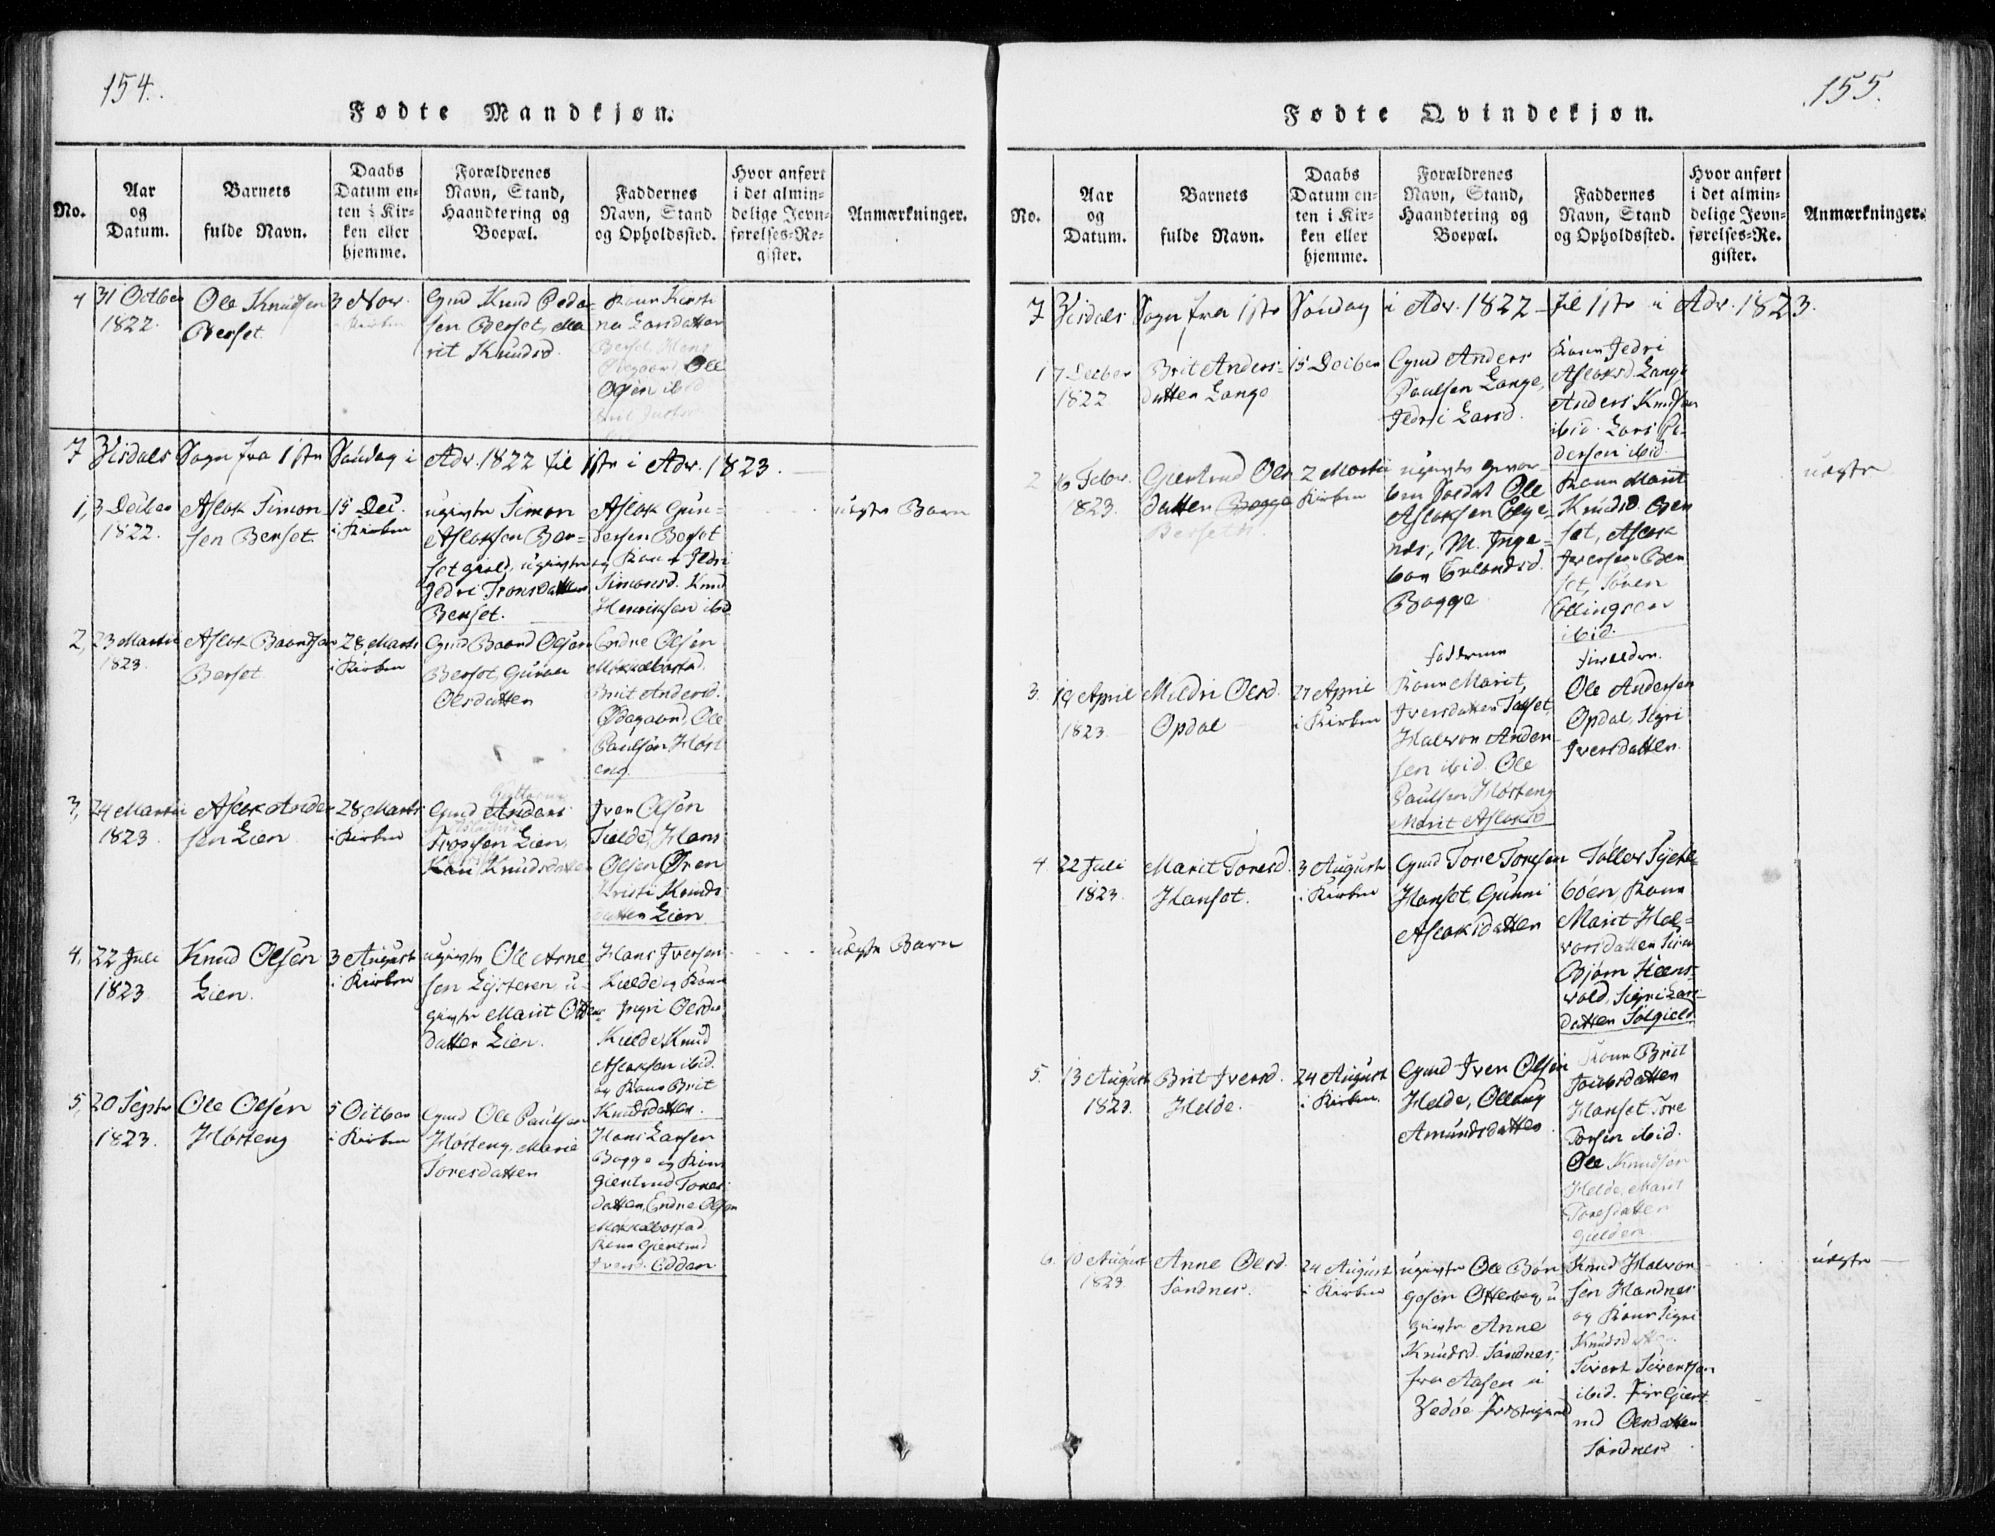 154.
Fødte Mandkjøn.
No.
Aar
og
Datum.
Barnets
fulde Navn.
Daabs
Datum en-
ten i Kir-
ken eller
hjemme.
Forældrenes
Navn, Stand,
Haandtering og
Boepæl.
Faddernes
Navn, Stand
og Opholdssted.
Hvor anført
i det almin-
delige Jevn-
førelses-Re-
gister.
Anmærkninger.
4
31 Octber
1822.
Ole Knudsen
Berset
3 Nov.
i Kirken
Gmd Knud Peder
sen Berset, Ma
rit Knudsd.
Kone Kirsti
na Larsdatter
Berset, Hans
Ødegaard, Ole
Olsen ibid
7 Visdals Sogn fra 1ste Søndag i Adv. 1822 til 1ste i Adv. 1823.
1,
3 Decber
1822.
Aslak Simon
sen Berset.
15 Dec.
i Kirken
ugivte Simon
Aslaksen Ber-
set gield, ugivte
Jedri Tronsdatter
Berset.
Aslak Gun-
dersen Berset
og Kone Jedri
Simonsd. Knud
Henriksen ibid
uægte Barn
2,
23 Martii
1823.
Aslak Baardsen
Berset
28 Marts
i Kirken
Gmd Baard Olsen
Berset, Gunner
Olsdatter
Endre Olsen
Mekkelbostad.
Brit Andersd.
Ødegaard, Ole
Paulsen Høst
eng.
3,
24 Martii
1823.
Aslak Ander
sen Lien
28, Marts
i Kirken
Gmd Anders
Tros­sen Lien,
Kari Knudsdatter
Iver Olsen
Tielde, Hans
Olsen Øren
Kristi Knuds
datter Lien
4,
22 Juli
1823.
Knud Olsen
Lien.
3 August
i Kirken
ugivte Ole Arne
sen Lysteren, u-
givte Marit Otter
datter Lien.
Hans Iversen
Kielde og Kone
Ingri Olsda
Kielde, Knud
Aslaksen ibid.
og Kone Brit
Knudsdatter.
uægte Barn
5,
20 Septr
1823.
Ole Olsen
Høsteng
5 Octber
i Kirken
Gmd Ole Paulsen
Høsteng, Marie
Toresdatter
Hans Larsen
Bogge og Kone
Giertrud Tores
datter, Endre Olsen
Mekkelbostad
Kone Giertrud
Iversd. Eddan
155.
Fødte Qvindekjøn.
No.
Aar
og
Datum.
Barnets
fulde Navn.
Daabs
Datum en-
ten i Kir-
ken eller
hjemme.
Forældrenes
Navn, Stand,
Haandtering og
Boepæl.
Faddernes
Navn, Stand
og Opholdssted.
Hvor anført
i det almin-
delige Jevn-
førelses-Re-
gister.
Anmærkninger.
7 Visdals Sogn fra 1ste Søndag i Adv. 1822 til 1ste i Adv. 1823.
1
7 Decber
1822
Brit Anders-
datter Lange
15 Decber
Gmd Anders
Paulsen Lange,
Jedri Larsd.
Kone Jedri
Aslaksd. Lange
Anders Knudsen
ibid. Lars Pe-
dersen ibid.
2
16 Febr.
1823.
Giertrud Ols
datter Bogge
Berseth.
2 Martii
i Kirken
ugivte gevor-
ben Soldat Ole
Aslaksen Elge-
næs, M. Inge-
bor Erlandsd.
Bogge
Kone Marit
Knudsd. Ber
set, Aslak
Iversen Ber
set, Søren
Ellingsen
ibid.
uægte
3.
19 April
1823.
Mildri Olsd.
Opdal
27 April
i Kirken
Fadderne
Kone Marit
Iversdatter Torset,
Halvor Ander-
sen ibid. Ole
Paulsen Høsteng
Marit Aslaksd
Forældre.
Ole Andersen
Opdal, Sigri
Iversdatter.
4
22 Juli
1823.
Marit Toresd.
Hanset.
3 August
i Kirken
Gmd Tore Toresen
Hanset, Gunni
Aslaksdatter
Tollev
bøen, Kone
Marit Hal-
vorsdatter
Bjørn Heens-
vold. Sigri Lars-
datter Solgield
5.
13 August
1823.
Brit Iversd.
Helde.
24 August
i Kirken
Gmd Iver Olsen
Helde, Olloug
Amundsdatter
Kone Brit
Joensdatter
Hanset, Tore
Torsen ibid.
Ole Knudsen
Helde, Marit
Toresdatter
Gulden.
6.
10 August
1823
Anne Olsd.
Sandnes.
24 August
i Kirken
ugivte Ole Bør
gesen Otterøe, u
givte Anne
Knudsd. Sandnes,
fra Aasen i
Vedøe Præstegield
Knud Halvor
sen Handnes
og Kone Sigri
Knudsd
Sivert Sivertsen
ibid. Giert
rud Olsdatter
Sandnes
uægte